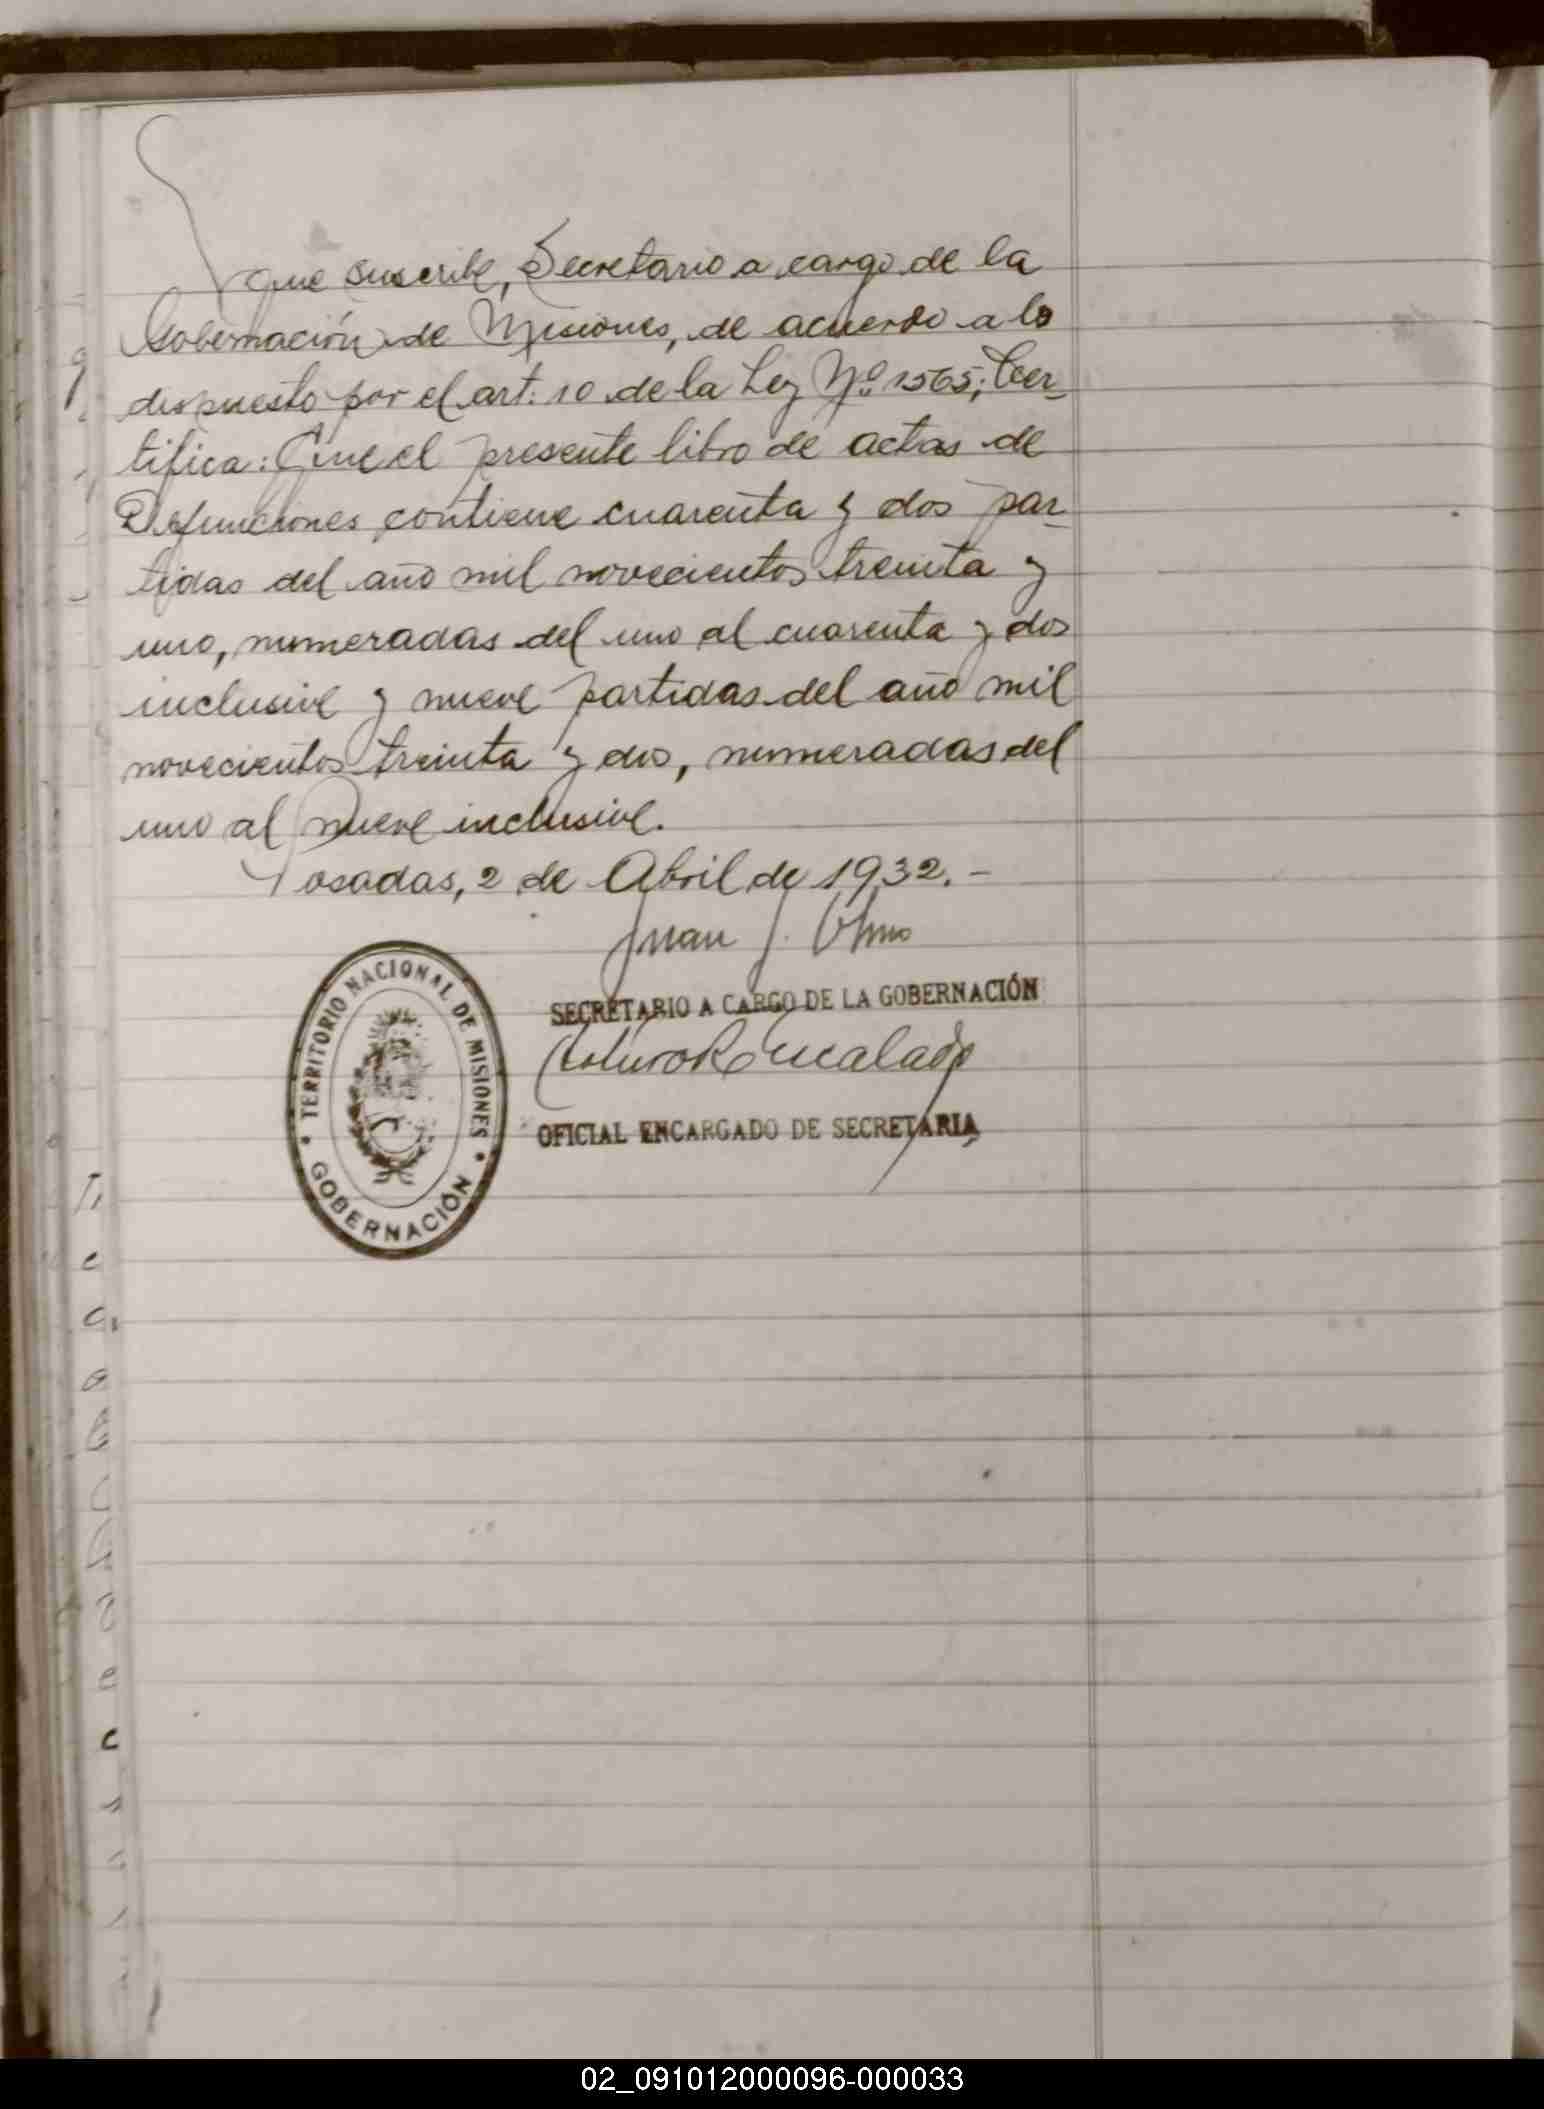 que suscribe, Secretario a cargo de la
Gobernación de Misiones, de acuerdo a lo
dispuesto por el art: 10 de la Ley Nº 1565; Cer-
tifica: Que el presente libro de actas de
Defunciones contiene cuarenta y dos par-
tidas del año mil novecientos treinta y
uno, numeradas del uno al cuarenta y dos
inclusive y nueve partidas del año mil
novecientos treinta y dos, numeradas del
uno al nueve inclusive.
Posadas, 2 de Abril de 1932.-
Juan J. Olmo
SECRETARIO A CARGO DE LA GOBERNACIÓN
OFICIAL ENCARGADO DE SECRETARIA
TERRITORIO NACIONAL DE MISIONES
GOBERNACIÓN
02_091012000096-000033